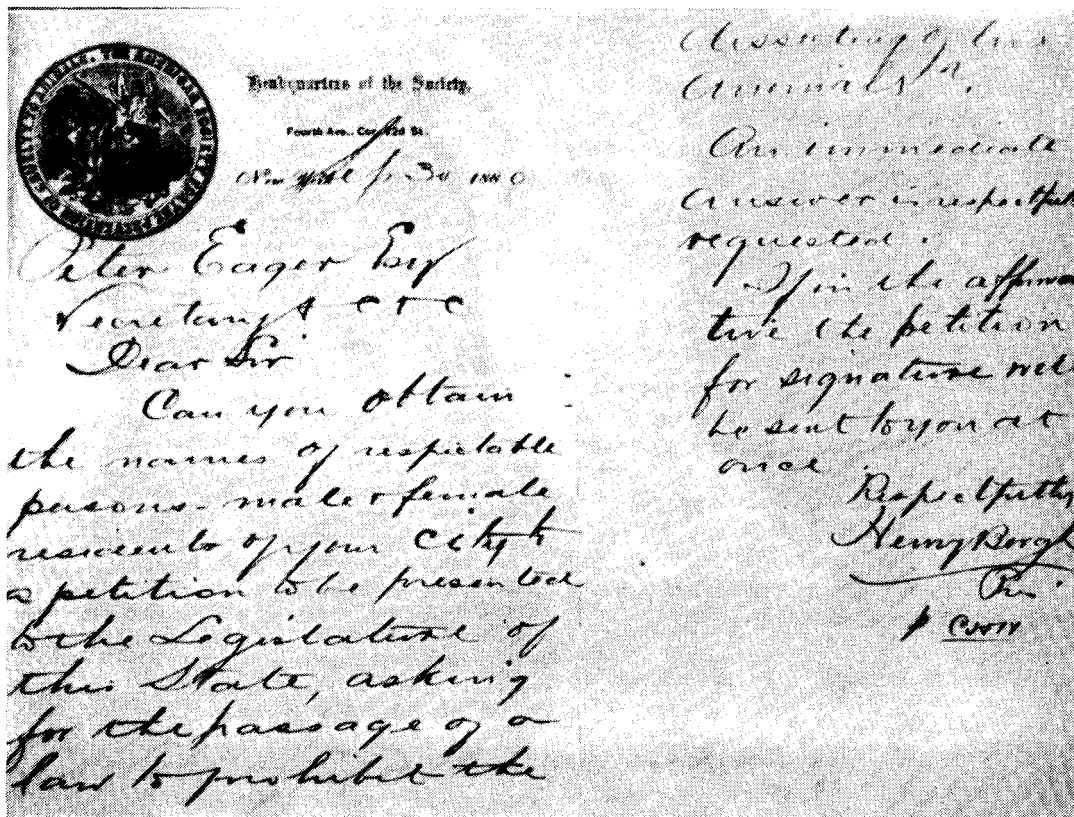 THE AMERICAN SOCIETY FOR THE PREVENTION OF CRUELTY TO ANIMALS.
Headquarters of the Society,
Fourth Ave., Cor. 22d St.
New York 30 1880
Peter Eager Esq
Secretary &c &c
Dear Sir
Can you obtain
the names of respectable
persons - male & female
residents of your City to
a petition to be presented
to the Legislature of
this State, asking
for the passage of a
law to prohibit the
dissecting of live
Animals".
An immediate
Answer is respectfull
requested.
If in the affirma
tive the petition
for signature will
be sent to you at
once.
Respectfully
Henry Bergh
Pres